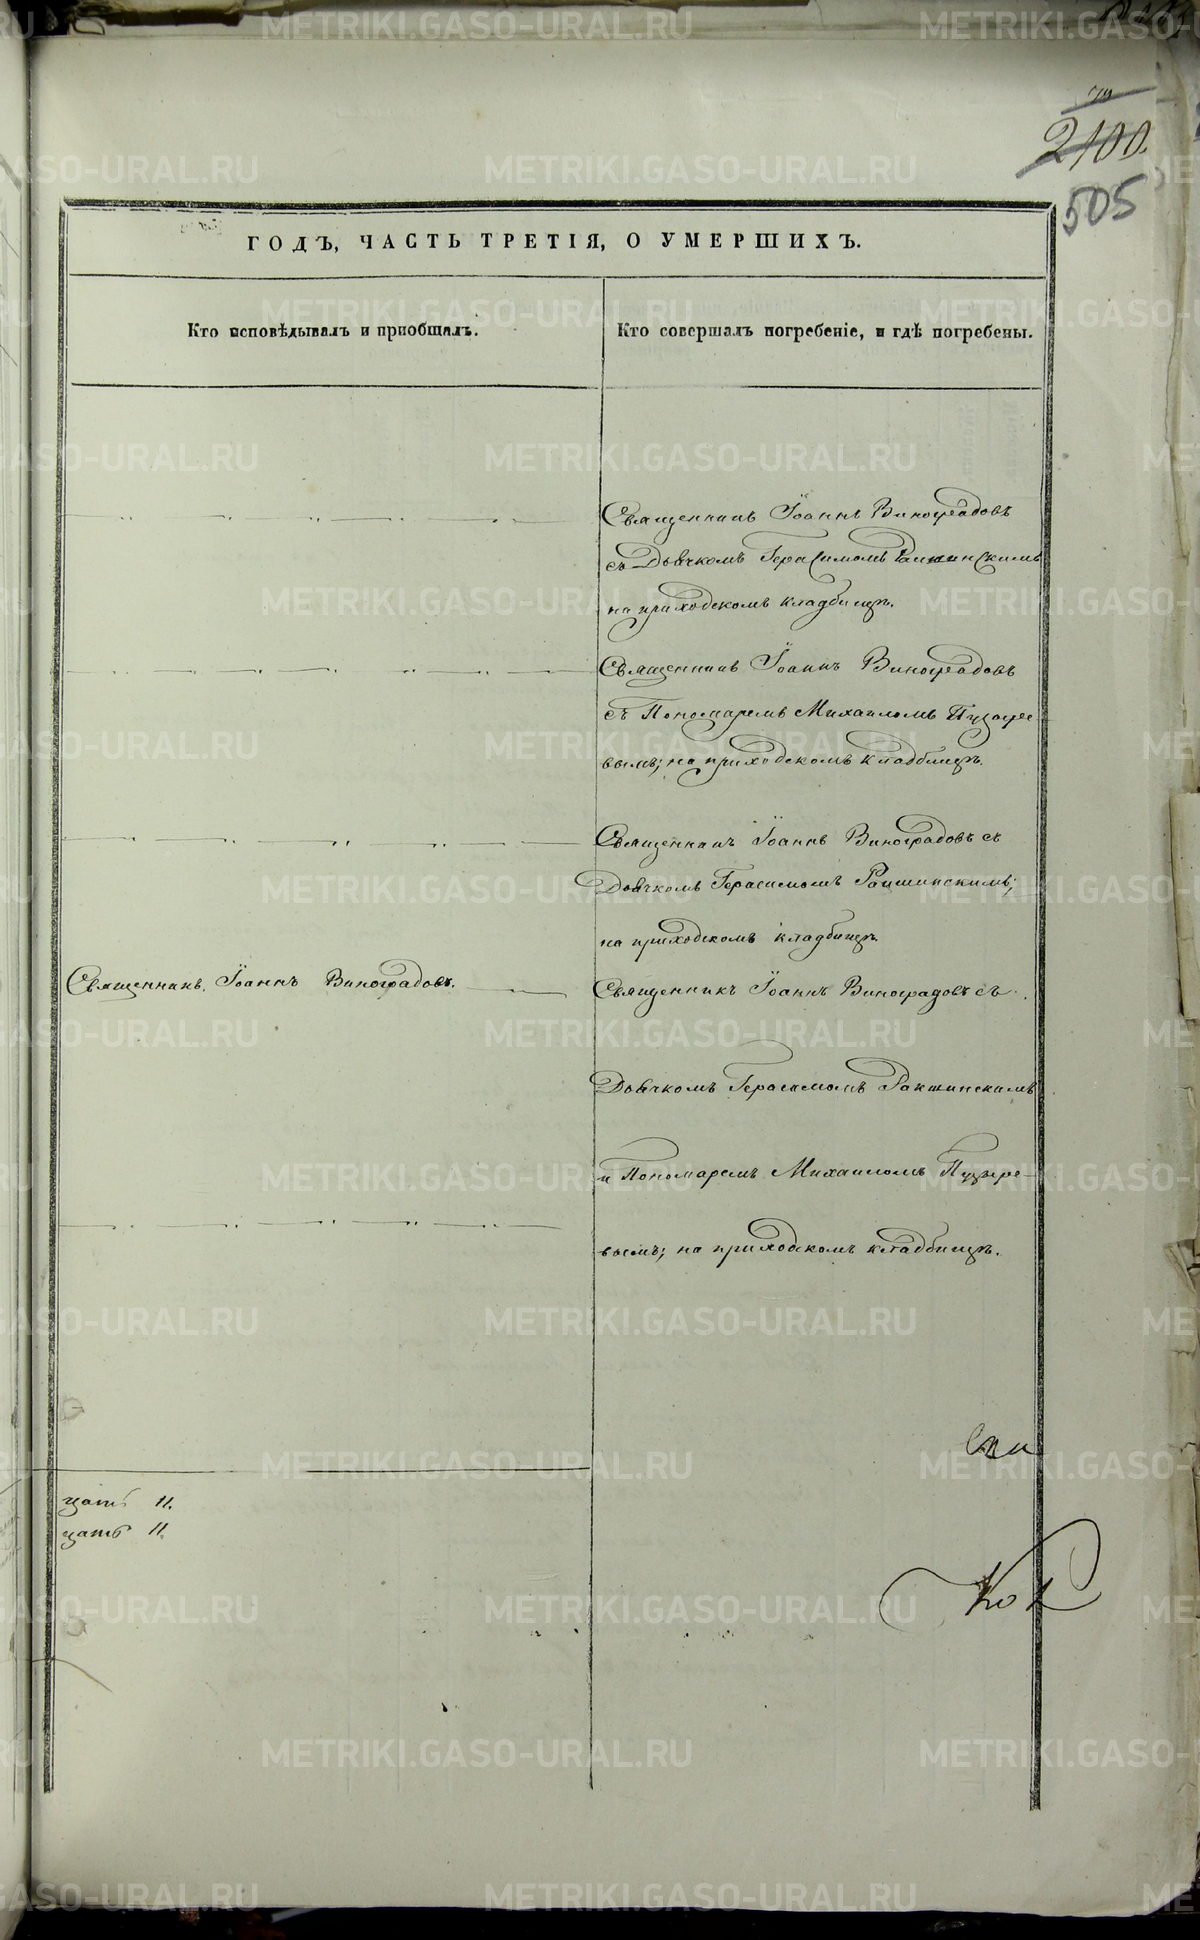 2100.
505
ГОДЪ, ЧАСТЬ ТРЕТІЯ, О УМЕРШИХЪ.
Кто исповѣдывалъ и пріобщалъ.
Кто совершалъ погребеніе, и гдѣ погребены.
Священникъ Іоаннъ Виноградовъ
съ Дьячкомъ Герасимомъ Ракшинскимъ
на приходскомъ кладбищѣ.
Священникъ Іоаннъ Виноградовъ
съ Пономаремъ Михаиломъ Пузыре-
вымъ; на приходскомъ кладбищѣ.
Священникъ Іоаннъ Виноградовъ съ
Дьячкомъ Герасимомъ Ракшинскимъ;
на приходскомъ кладбищѣ.
Священникъ Іоаннъ Виноградовъ.
Священникъ Іоаннъ Виноградовъ съ
Дьячкомъ Герасимомъ Ракшинскимъ
и Пономаремъ Михаиломъ Пузыре-
вымъ; на приходскомъ кладбищѣ.
Сви
цать 11.
цать 11.
METRIKI.GASO-URAL.RU